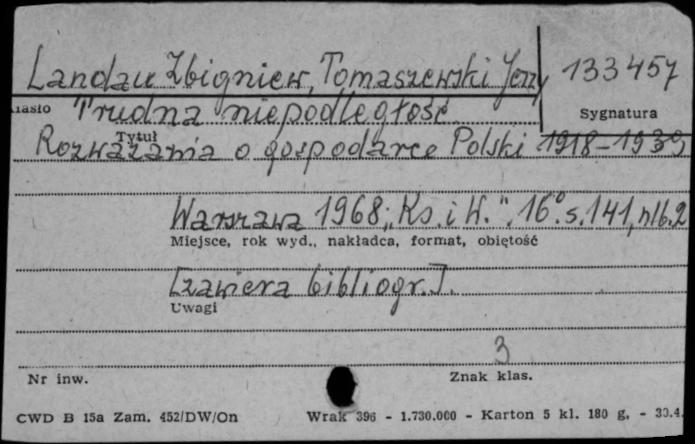 Landau Zbigniew, Tomaszewski Jerzy 133457
Hasło Sygnatura
Trudna niepodległość
Tytuł
Rozważania o gospodarce Polski 1918-1939
Warszawa 1968 „Ks. i W.". 16° s. 141, nlb. 2
Miejsce, rok wyd., nakładca, format, objętość
[zawiera bibliogr.].
Uwagi
3
Nr inw. Znak klas.
CWD B 15a Zam. 452/DW/On Wrak 396 - 1.730.000 - Karton 5 kl. 180 g. - 30.4.